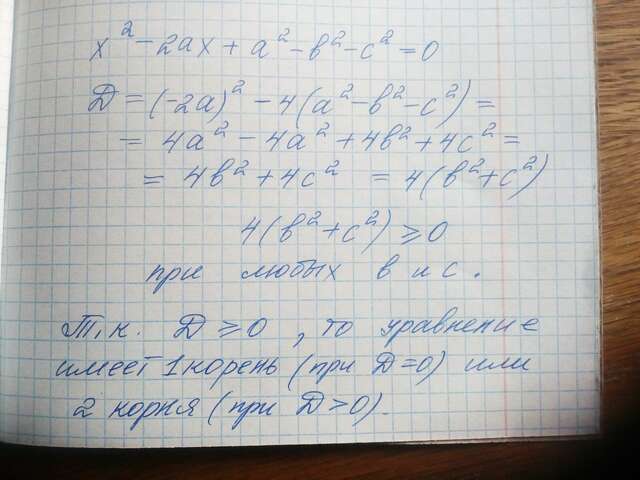 x² - 2ax + a² - в² - c² = 0
D = (-2a)² - 4(a² - в² - c²) =
= 4a² - 4a² + 4в² + 4c² =
= 4в² + 4c² = 4(в² + c²)
4(в² + c²) ⩾ 0
при любых в и с.
Т.к. D ⩾ 0, то уравнение
имеет 1 корень (при D=0) или
2 корня (при D>0).